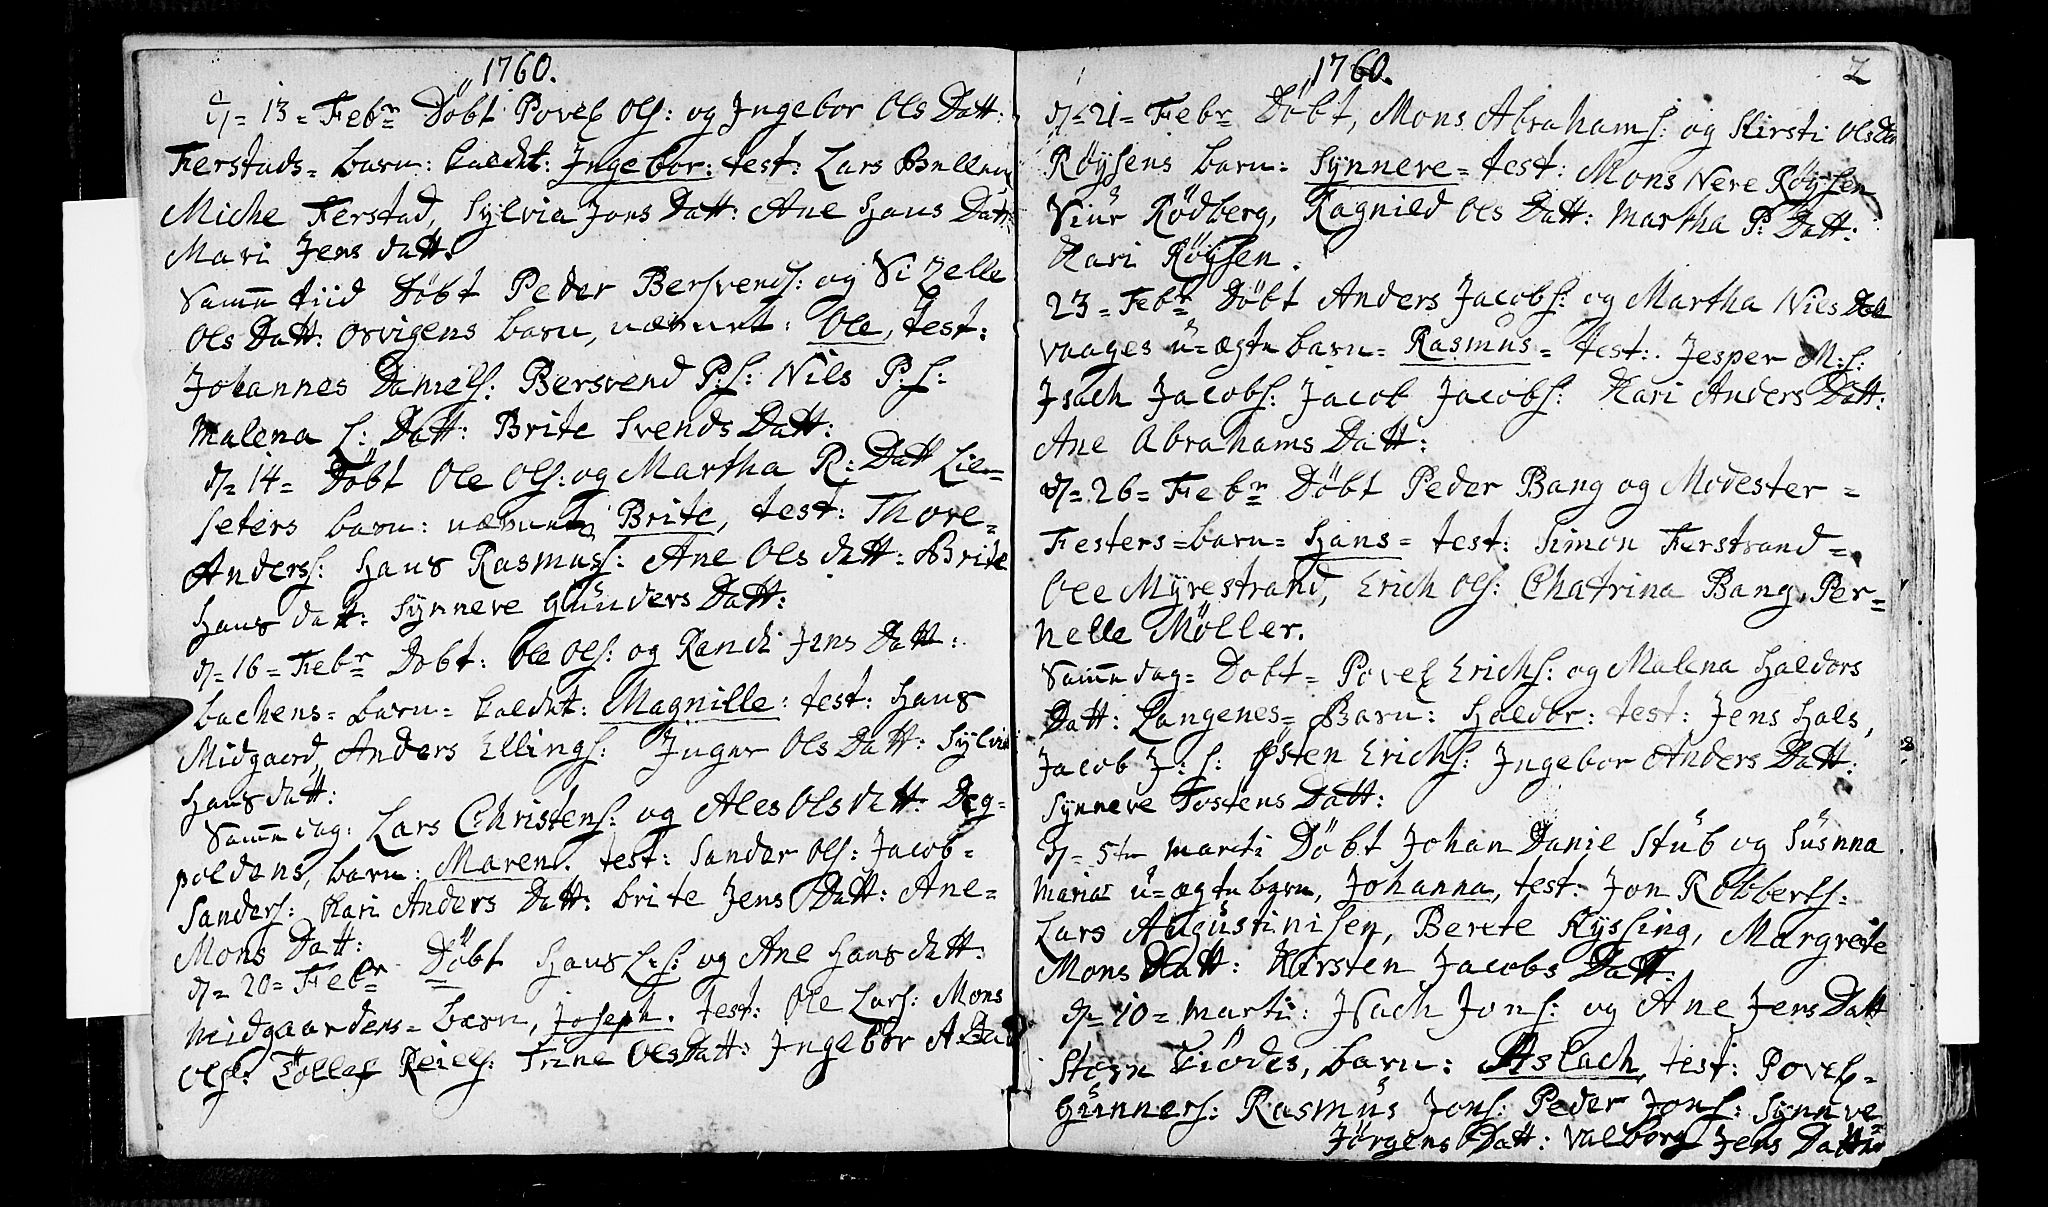 1760.
d = 13 = Febr Döbt Povel Ols: og Ingebor Ols Datt:
Ferstads = barn: kaldt: Ingebor: test: Lars
Miche Ferstad, Sylvia Jons Datt: Ane Hans Datt:
Mari Jens datt:
Samme tiid Döbt Peder Bersvends: og Sizelle
Ols Datt: Orvigens barn, nævnt: Ole, test:
Johannes Daniels: Bersvend P:s: Nils P:s:
Malena L: Datt: Brite Svends Datt:
d = 14 = Döbt Ole Ols: og Martha R: Datt Lie=
seters barn: nævnt Brite, test: Thore=
Anderss: Hans Rasmuss: Ane Ols datt: Brite
Hans datt: Synneve Gunders Datt:
d = 16 = Febr Dobt: Ole Ols: og Randi Jens Datt:
bachens = barn = kaldt: Magnille: test: Hans
Midgaard, Anders Ellings: Inger Ols Datt: Sylvia
Hans datt:
Samme dag: Lars Christens: og Ales Ols datt: Deg=
poldens, barn: Maren. test: Sander Ols: Jacob=
Sanders: Kari Anders Datt: brite Jens Datt: Ane=
Mons Datt:
d = 20 = Febr Döbt Hans L:s: og Ane Hans datt:
Midgaardens = barn, Joseph. test: Ole Lars: Mons
Ols: Tollef Keiels: Trine Ols Datt: Ingebor A: Dat
1760. 2
d = 21 = Febr Döbt, Mons Abrahams: og Kirsti Olsda
Röysens barn: Synneve = test: Mons Nere Röysen
Siur Rödberg, Ragnild Ols Datt: Martha P: Datt:
Kari Röysen.
23 = Febr Döbt Anders Jacobs: og Martha Nils Datt
vaages u=ægte barn = Rasmus = test: Jesper M:s:
Isach Jacobs: Jacob Jacobs: Kari Anders Datt:
Ane Abrahams Datt:
d = 26 = Febr Döbt Peder Bang og Modester =
Festers = barn = Hans = test: Simon Ferstrand =
Ole Myrestrand, Erich Ols: Chatrina Bang, Per=
nelle Möller.
Samme dag = Dobt = Povel Erichs: og Malena Haldors
Datt: Langenes = Barn: Haldor: test: Jens Hals,
Jacob J:s: Østen Erichs: Ingebor Anders Datt:
Synneve Tostens Datt:
d = 5te Marti Döbt Johan Danie Stub og Susnna
Maria u=ægte barn, Johanna, test: Jon Robberts:
Lars Augustinisen, Berete Kyssing, Margrete
Mons Datt: Kirsten Jacobs Datt:
d = 10 = Marti: Isach Jons: og Ane Jens Datt
Storn Fiödes, barn: Aslach, test: Povel=
Gunners: Rasmus Jons: Peder Jons: Synneve=
Jörgens Datt: Valborg Jens Datter